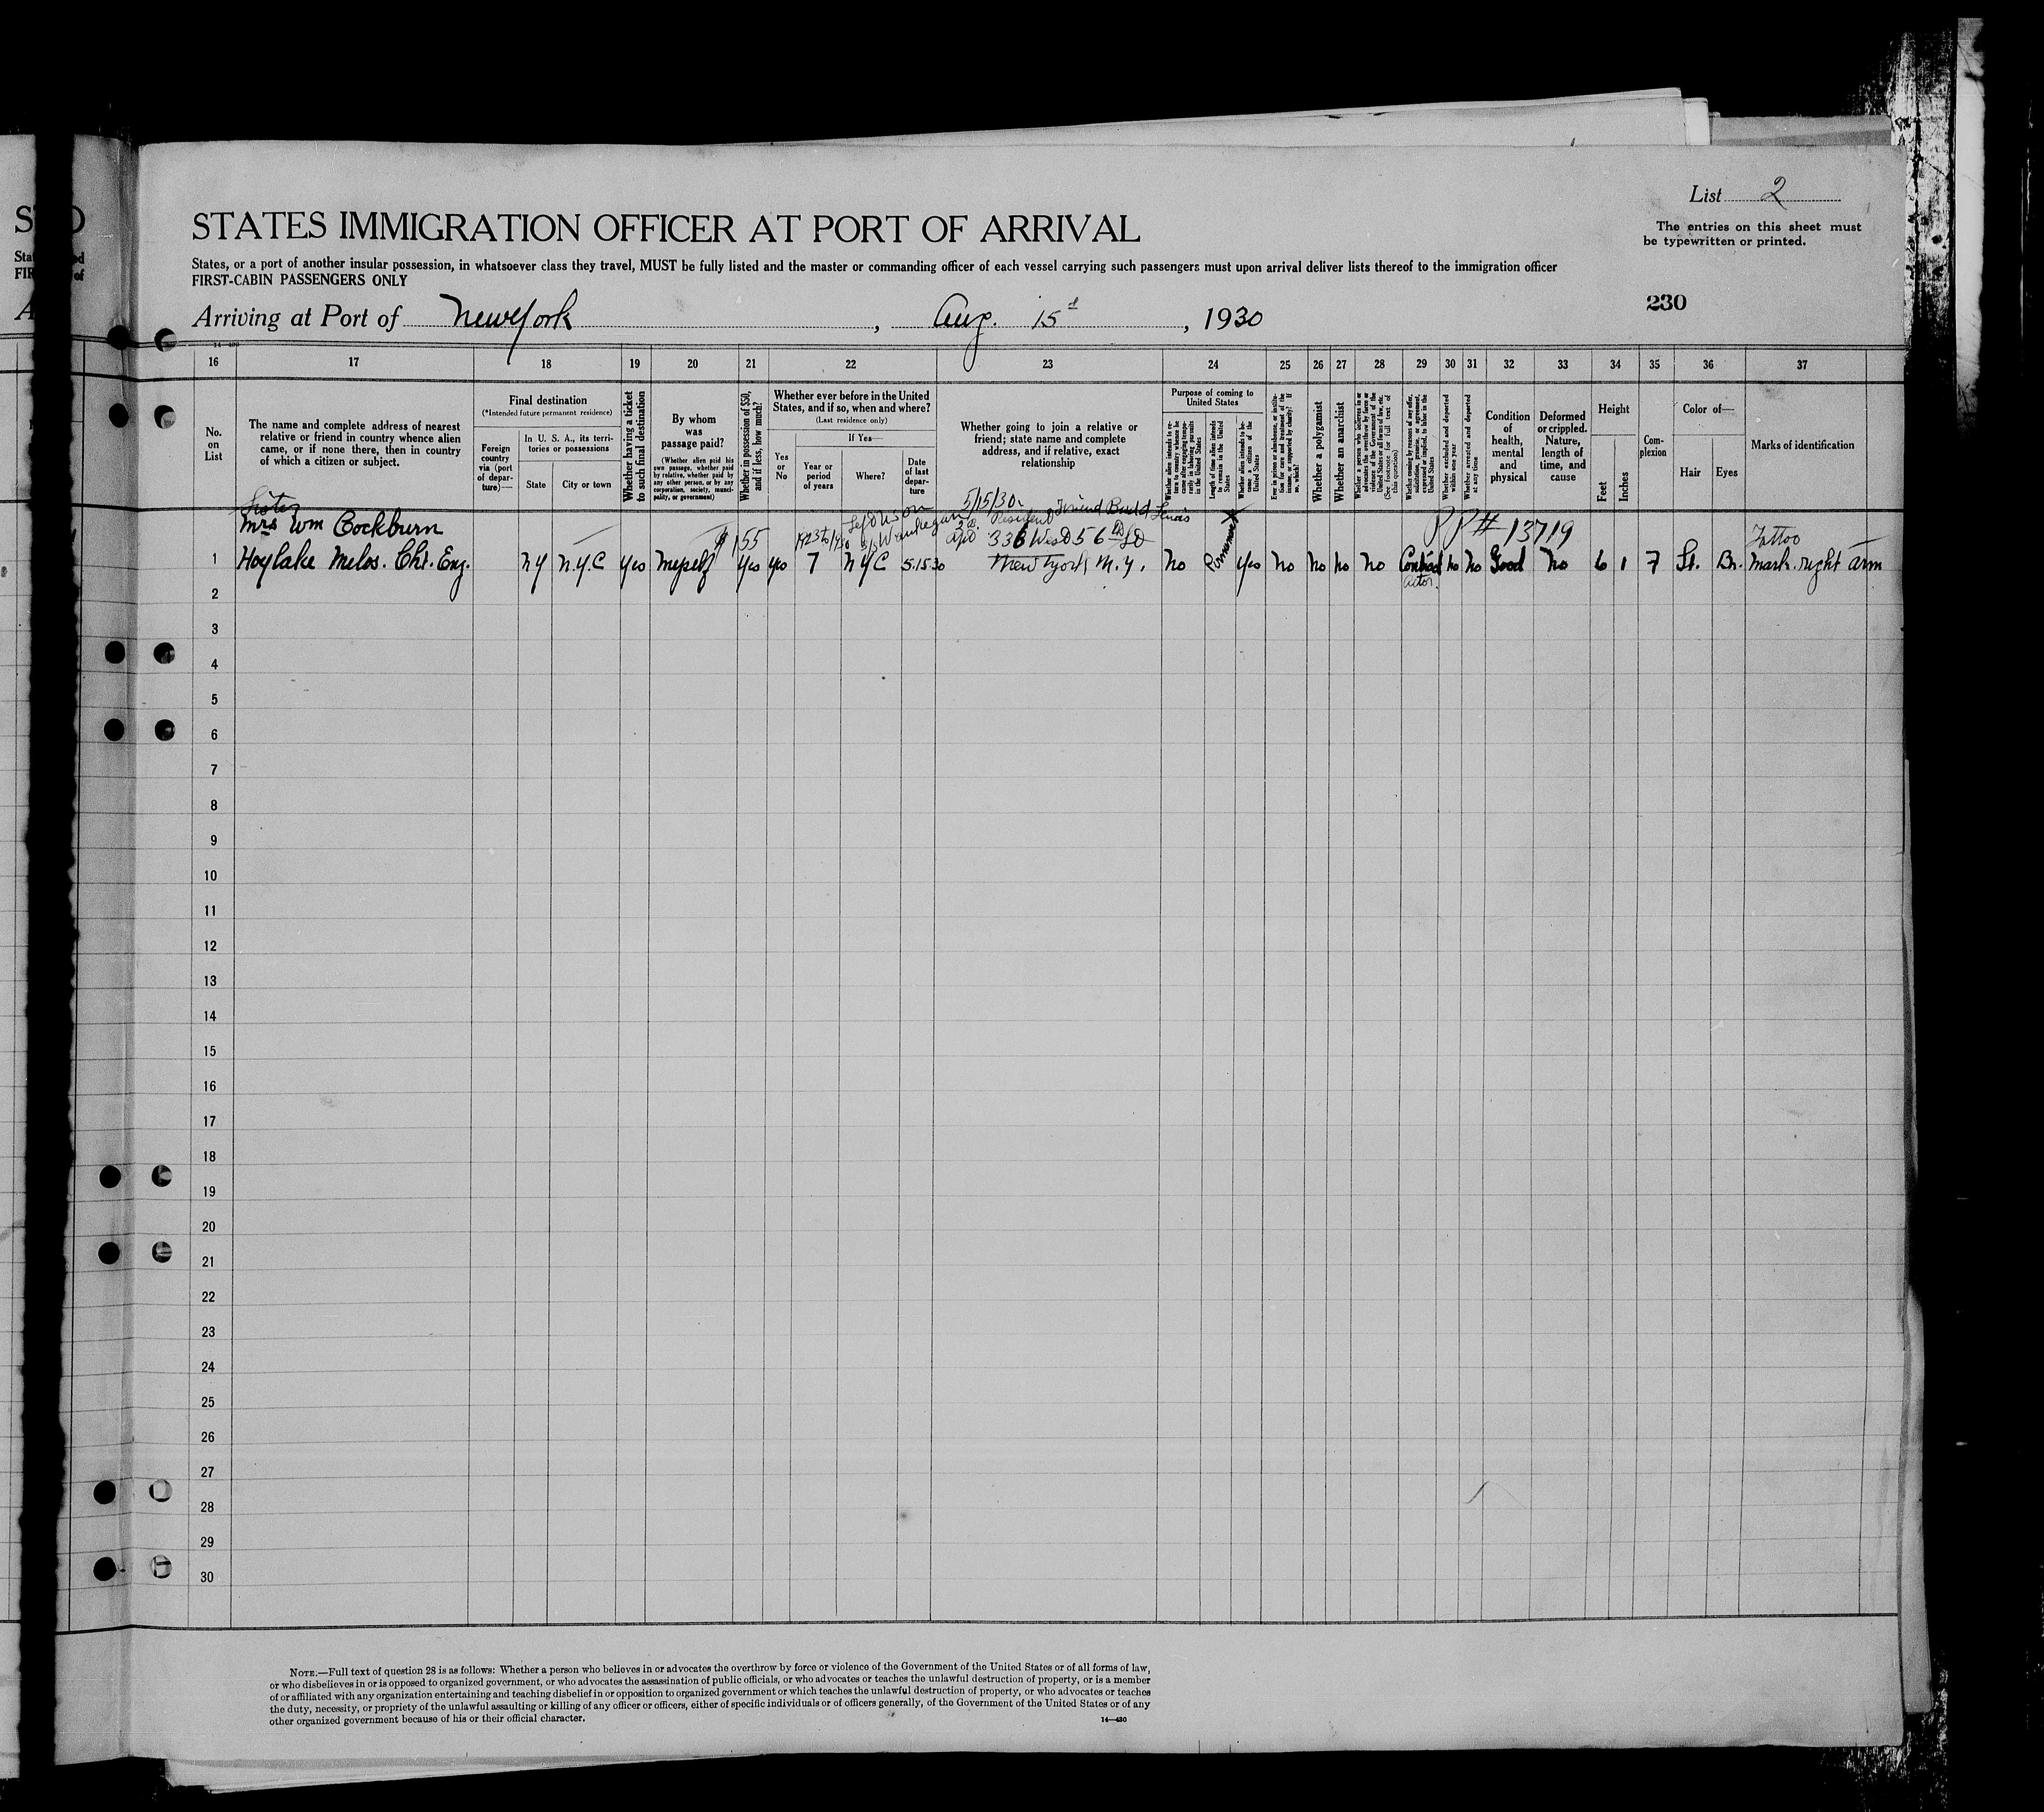 List 2
The entries on this sheet must
be typewritten or printed.
STATES IMMIGRATION OFFICER AT PORT OF ARRIVAL
States, or a port of another insular possession, in whatsoever class they travel, MUST be fully listed and the master or commanding officer of each vessel carrying such passengers must upon arrival deliver lists thereof to the immigration officer
FIRST-CABIN PASSENGERS ONLY
230
Arriving at Port of New York, Aug. 15, 1930
16 17 18 19 20 21 22 23 24 25 26 27 28 29 30 31 32 33 34 35 36 37
No.
on
List
The name and complete address of nearest
relative or friend in country whence alien
came, or if none there, then in country
of which a citizen or subject.
Final destination
(*Intended future permanent residence)
Foreign
country
via (port
of depar-
ture)—
In U. S. A., its terri-
tories or possessions
State
City or town
Whether having a ticket
to such final destination
By whom
was
passage paid?
(Whether alien paid his
own passage, whether paid
by relative, whether paid by
any other person, or by any
corporation, society, munici-
pality, or government)
Whether in possession of $50,
and if less, how much?
Whether ever before in the United
States, and if so, when and where?
(Last residence only)
Yes
or
No
If Yes—
Year or
period
of years
Where?
Date
of last
depar-
ture
Whether going to join a relative or
friend; state name and complete
address, and if relative, exact
relationship
Purpose of coming to
United States
Whether alien intends to re-
turn to country whence he
came after engaging tempo-
rarily in laboring pursuits
in the United States
Length of time alien intends
to remain in the United
States
Whether alien intends to be-
come a citizen of the
United States
Ever in prison or almshouse, or institu-
tion for care and treatment of the
insane, or supported by charity? If
so, which?
Whether a polygamist
Whether an anarchist
Whether a person who believes in or
advocates the overthrow by force or
violence of the Government of the
United States or all forms of law, etc.
(See footnote for full text of
this question)
Whether coming by reasons of any offer,
solicitation, promise, or agreement,
expressed or implied, to labor in the
United States
Whether excluded and deported
within one year
Whether arrested and deported
at any time
Condition
of
health,
mental
and
physical
Deformed
or crippled.
Nature,
length of
time, and
cause
Height
Feet
Inches
Com-
plexion
Color of—
Hair
Eyes
Marks of identification
Sister
Mrs Wm Cockburn
$155
5/15/30
Resident Friend Budd
336 West 56
PP # 13719
Tattoo
1 Hoylake Melos. Chr. Eng. NY N.Y.C yes myself yes yes 7 NYC 5.15.30 New York N.Y. No Permanent yes No No No No Contract No No Good No 6 1 7 Lt. Br. Mark. right arm
actor.
2
3
4
5
6
7
8
9
10
11
12
13
14
15
16
17
18
19
20
21
22
23
24
25
26
27
28
29
30
NOTE.—Full text of question 28 is as follows: Whether a person who believes in or advocates the overthrow by force or violence of the Government of the United States or of all forms of law,
or who disbelieves in or is opposed to organized government, or who advocates the assassination of public officials, or who advocates or teaches the unlawful destruction of property, or is a member
of or affiliated with any organization entertaining and teaching disbelief in or opposition to organized government or which teaches the unlawful destruction of property, or who advocates or teaches
the duty, necessity, or propriety of the unlawful assaulting or killing of any officer or officers, either of specific individuals or of officers generally, of the Government of the United States or of any
other organized government because of his or their official character.
14—430